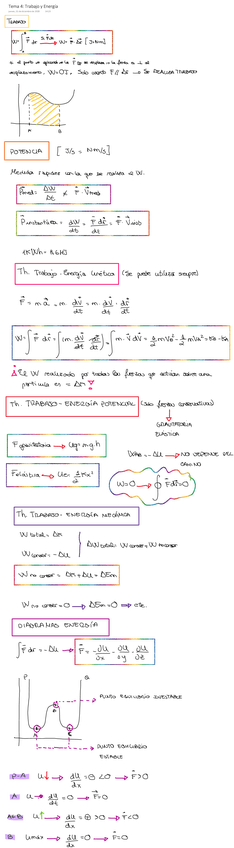 Tema 4: Trabajo y Energía
TRABAJO
W = ∫ F dr → W = F · Δr [J = Nm]
desplazamiento, W = 0J. Solo cuando F // Δr → SE REALIZA TRABAJO
A B
POTENCIA [J/s = Nm/s]
Medida rapidez con la que se realiza el W.
Pmed = ΔW/Δt = F · Vmed
Pinstantánea = dW/dt = F dr/dt = F · V
Th. Trabajo-Energía cinética (Se puede utilizar siempre)
F = m a = m · dv/dt = m · dv/dt · dr/dt
W = ∫ F dr = ∫ m dv/dt · dr = ∫ m · v dv = 1/2 m vB² - 1/2 m vA² = EB - EA
El W realizado por todas las fuerzas que actúan sobre una
partícula es = ΔEc
Th. TRABAJO - ENERGÍA POTENCIAL (solo fuerzas conservativas)
GRAVITATORIA
ELÁSTICA
Fgravitatoria → Ug = m g h
Felástica → Ue = 1/2 k x²
= -ΔU → NO DEPENDE DEL
CAMINO
W = 0 → ∮ F dr = 0
Th. TRABAJO - ENERGÍA MECÁNICA
W total = ΔEc
W conser = -ΔU
ΔW total = W conser + W no conser
W no conser = ΔEc + ΔU = ΔEm
W no conser = 0 → ΔEm = 0 → cte.
DIAGRAMAS ENERGÍA
∫ F dr = -ΔU → F = - ∂U/∂x - ∂U/∂y - ∂U/∂z
PUNTO EQUILIBRIO INESTABLE
A B
PUNTO EQUILIBRIO
ESTABLE
P-A U↓ → dU/dx = ⊖ < 0 → F > 0
A U → dU/dx = 0 → F = 0
A-B U↑ → dU/dx = ⊕ > 0 → F < 0
B U máx → dU/dx = 0 → F = 0